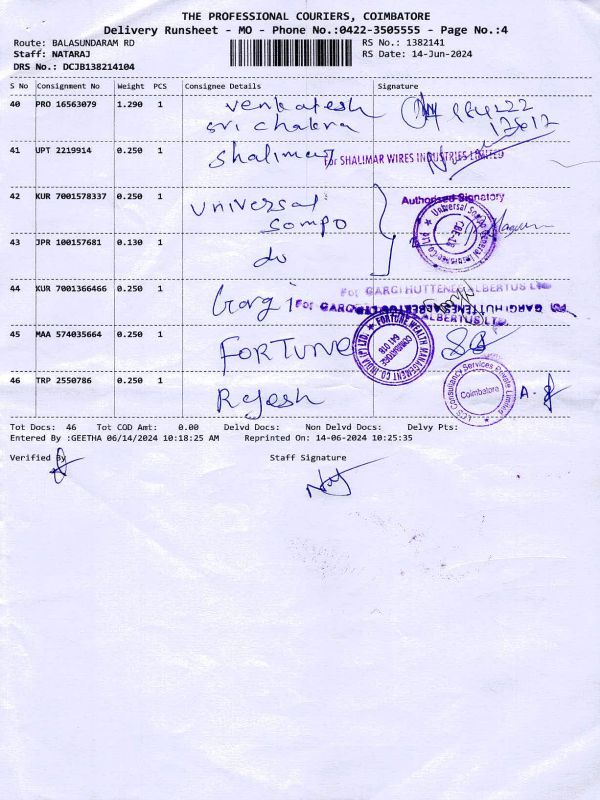 THE PROFESSIONAL COURIERS, COIMBATORE
Delivery Runsheet - MO - Phone No.:0422-3505555 - Page No.:4
Route: BALASUNDARAM RD
RS No.: 1382141
Staff: NATARAJ
RS Date: 14-Jun-2024
DRS No.: DCJB138214104
S No Consignment No Weight PCS Consignee Details Signature
40 PRO 16563079 1.290 1 Venkatesh
Sri chakra
41 UPT 2219914 0.250 1 Shalimar For SHALIMAR WIRES INDUSTRIES LIMITED
Authorised Signatory
42 KUR 7001578337 0.250 1 Universal
Sompo
Universal Sompo General Insurance Co Ltd
43 JPR 100157681 0.130 1 do
44 KUR 7001366466 0.250 1 Gargi For GARGI HUTTENES ALBERTUS LTD
For GARGI HUTTENES ALBERTUS LTD.
45 MAA 574035664 0.250 1 FORTUNE
FORTUNE WEALTH MANAGEMENT CO INDIA (P) LTD.
COIMBATORE
641 018
46 TRP 2550786 0.250 1 Rajesh
Consultancy Services Private Limited
Coimbatore
Tot Docs: 46 Tot COD Amt: 0.00 Delvd Docs: Non Delvd Docs: Delvy Pts:
Entered By :GEETHA 06/14/2024 10:18:25 AM Reprinted On: 14-06-2024 10:25:35
Verified By
Staff Signature